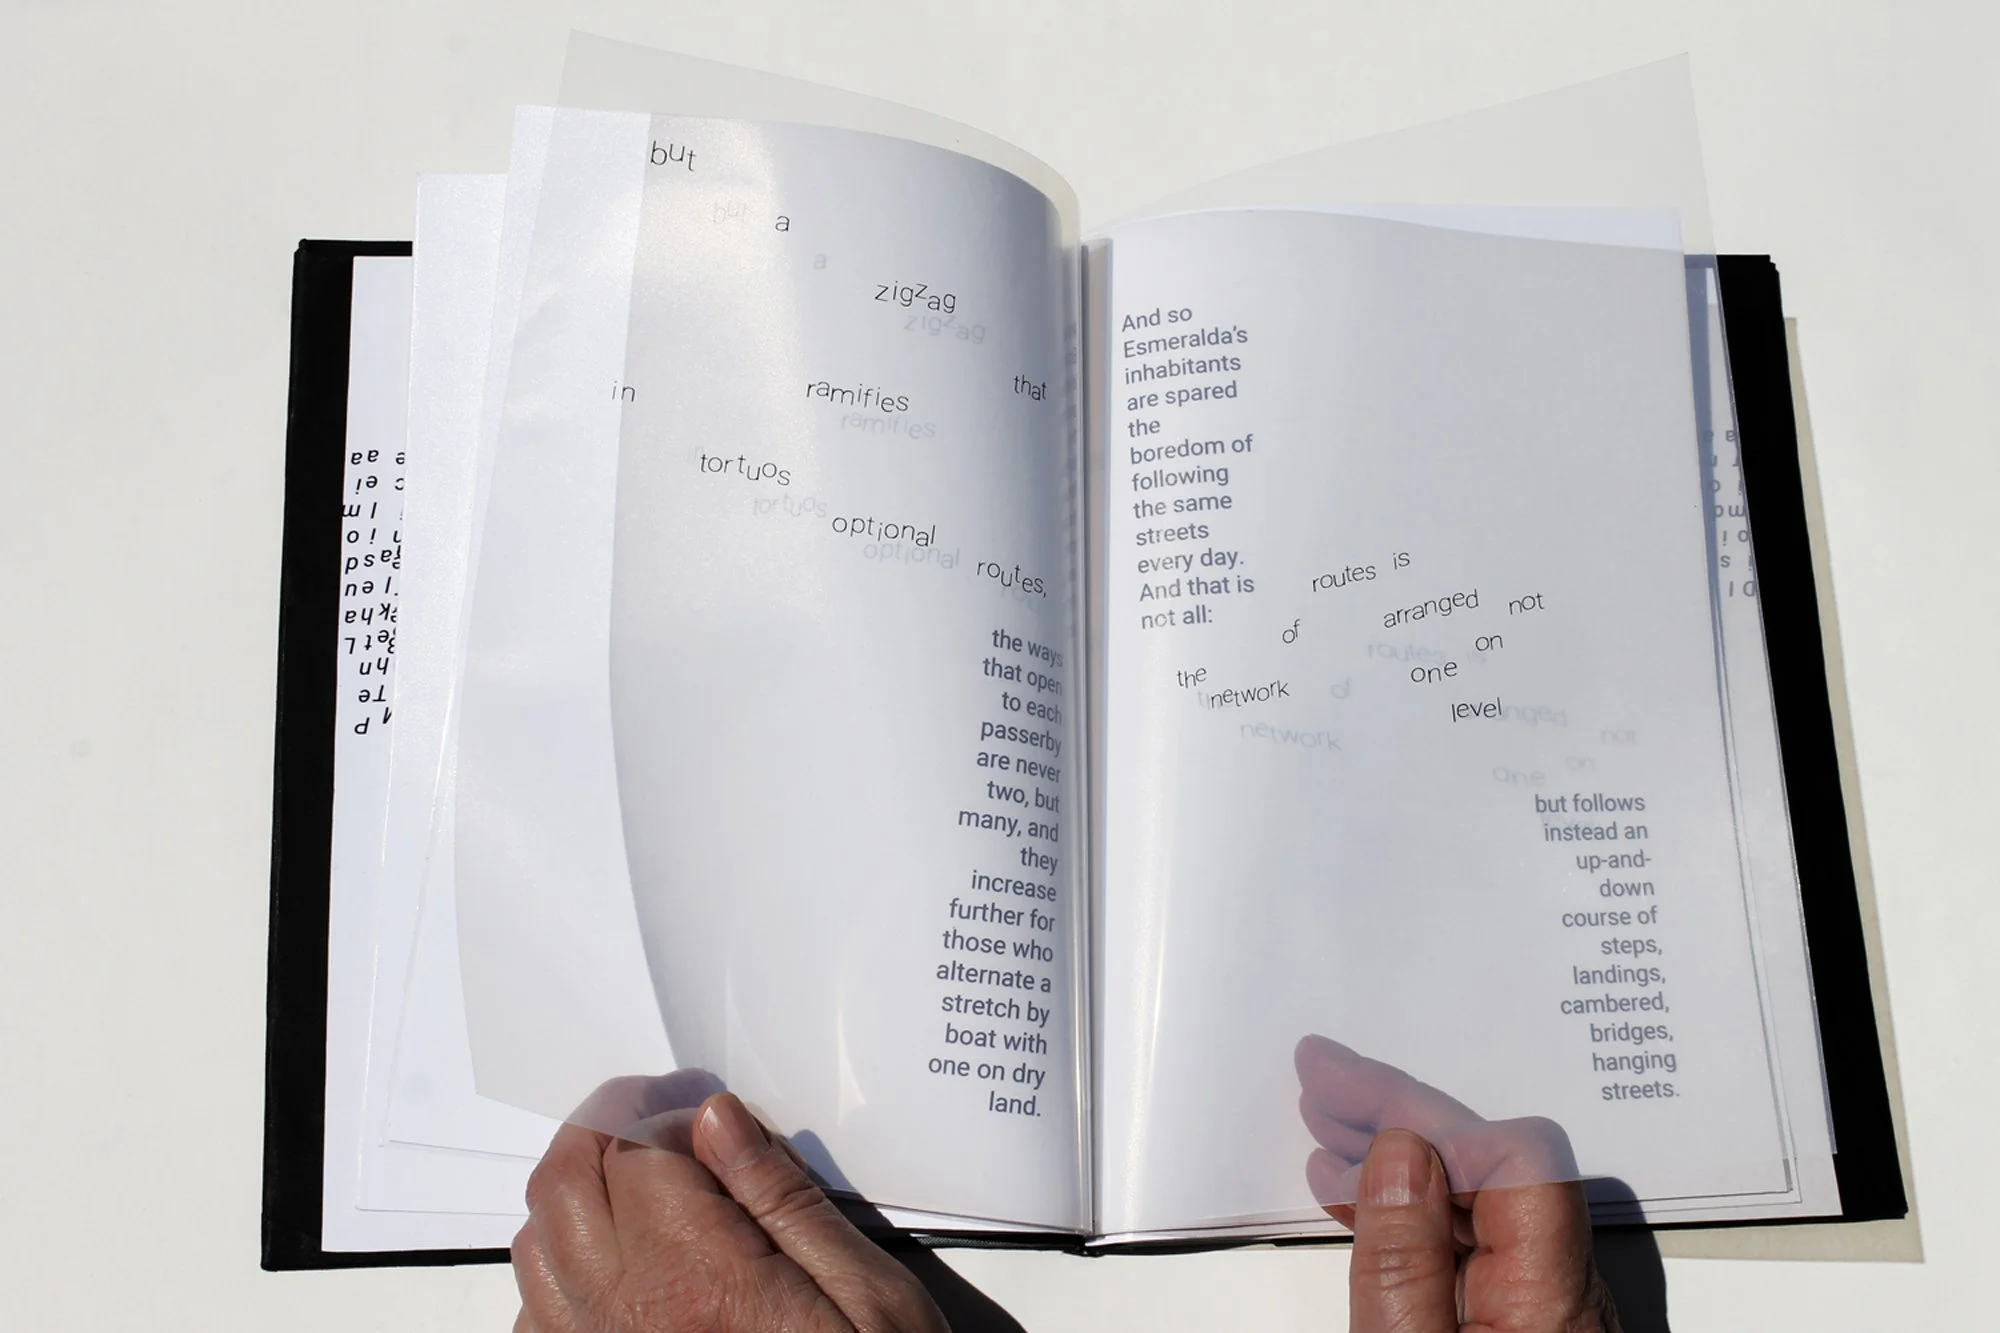 but
a
zigzag
that
ramifies
in
tortuos
optional
routes,
the ways
that open
to each
passerby
are never
two, but
many, and
they
increase
further for
those who
alternate a
stretch by
boat with
one on dry
land.
And so
Esmeralda's
inhabitants
are spared
the
boredom of
following
the same
streets
every day.
And that is
not all:
the
network
of
routes is
arranged
not
on
one
level
but follows
instead an
up-and-
down
course of
steps,
landings,
cambered,
bridges,
hanging
streets.